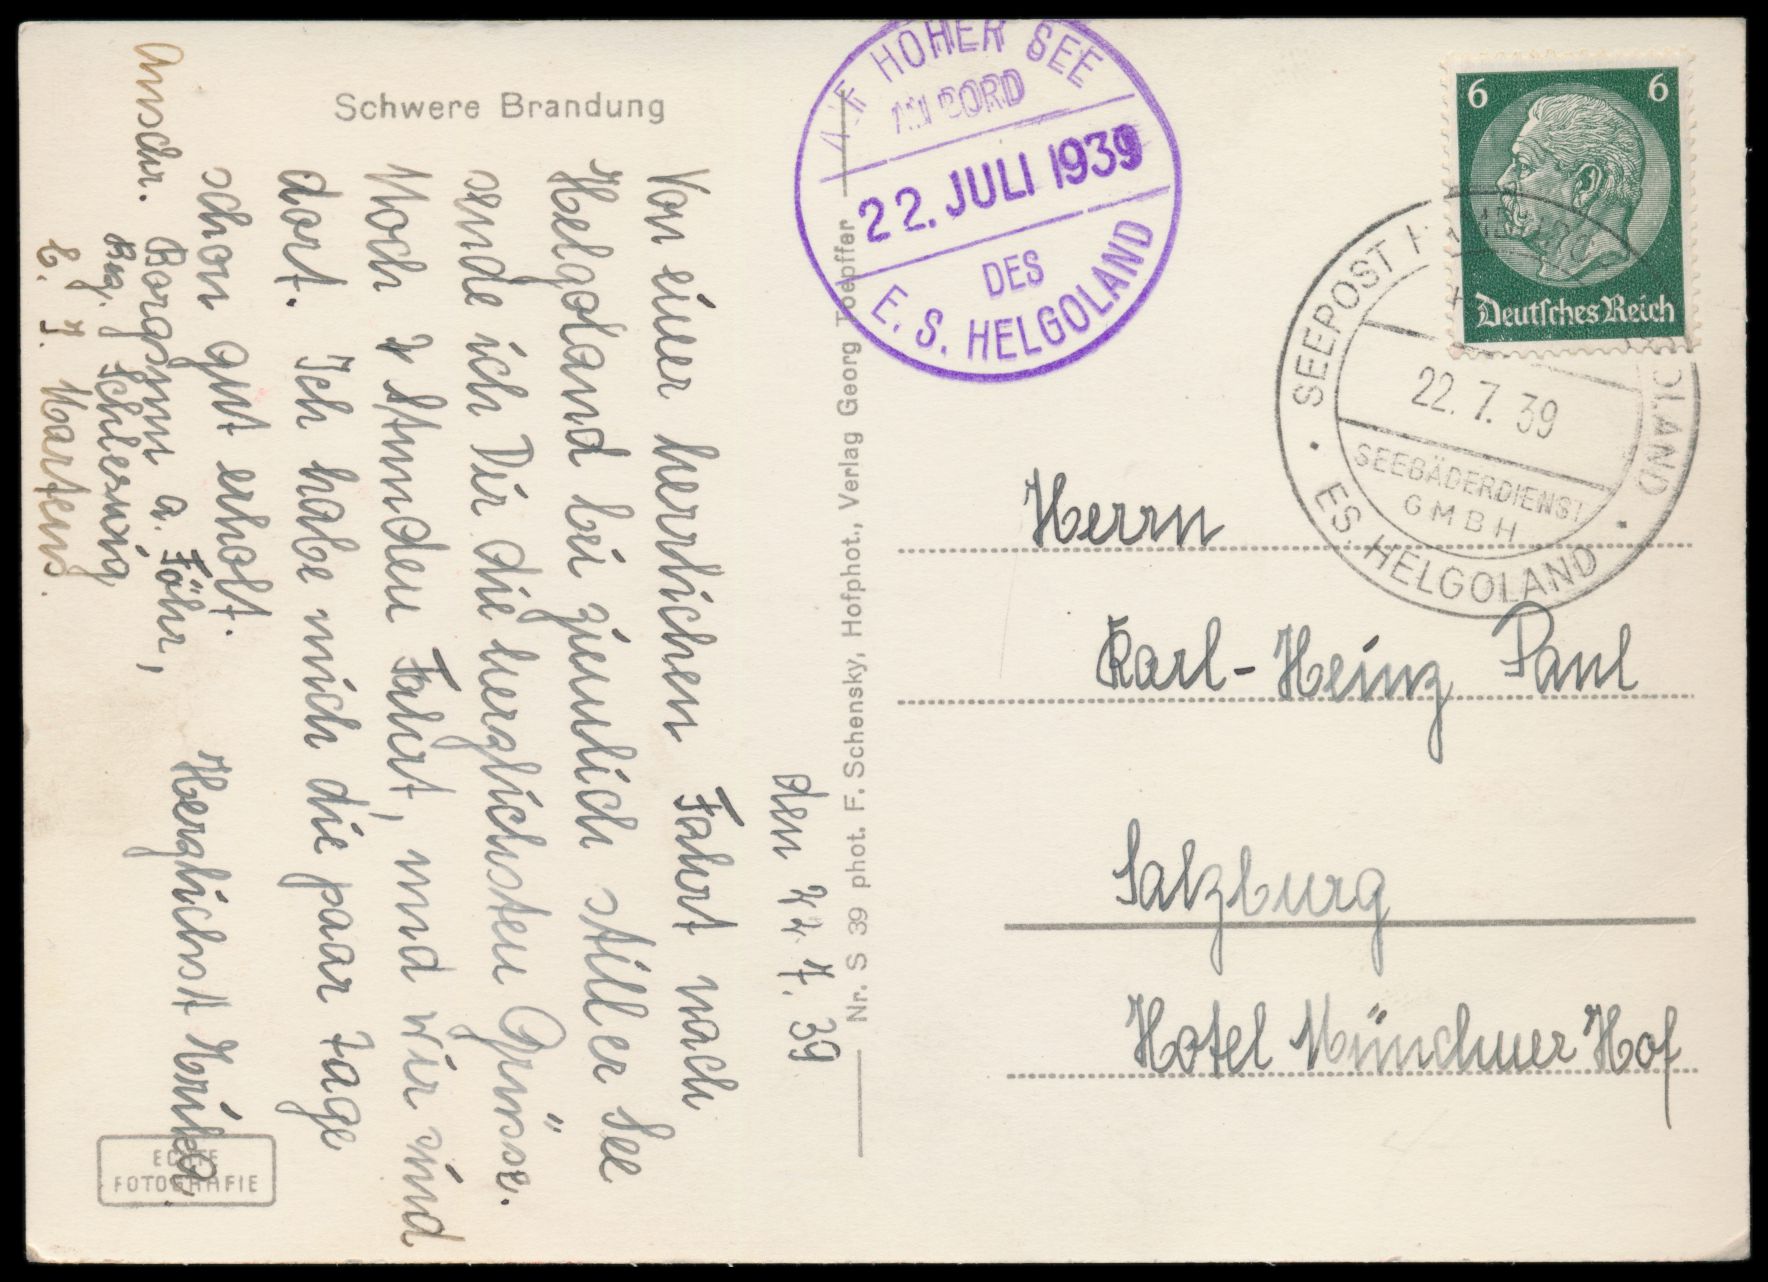 Schwere Brandung
den 22. 7. 39
Von einer herrlichen Fahrt nach
Helgoland bei ziemlich stiller See
sende ich Dir die herzlichsten Grüsse.
Noch 2 Stunden Fahrt, und wir sind
dort. Ich habe mich die paar Tage
schon gut erholt.
Herzlichst Erika.
Anschr. Borgsum a. Föhr,
Bez. Schleswig
b. J. Martens.
ECHTE
FOTOGRAFIE
Nr. S 39 phot. F. Schensky, Hofphot., Verlag Georg Toepffer
AUF HOHER SEE
AN BORD
22. JULI 1939
DES
E. S. HELGOLAND
6 6
Deutsches Reich
SEEPOST HAMBURG HELGOLAND
22. 7. 39
SEEBÄDERDIENST
GMBH
ES. HELGOLAND
Herrn
Karl-Heinz Paul
Salzburg
Hotel Münchner Hof